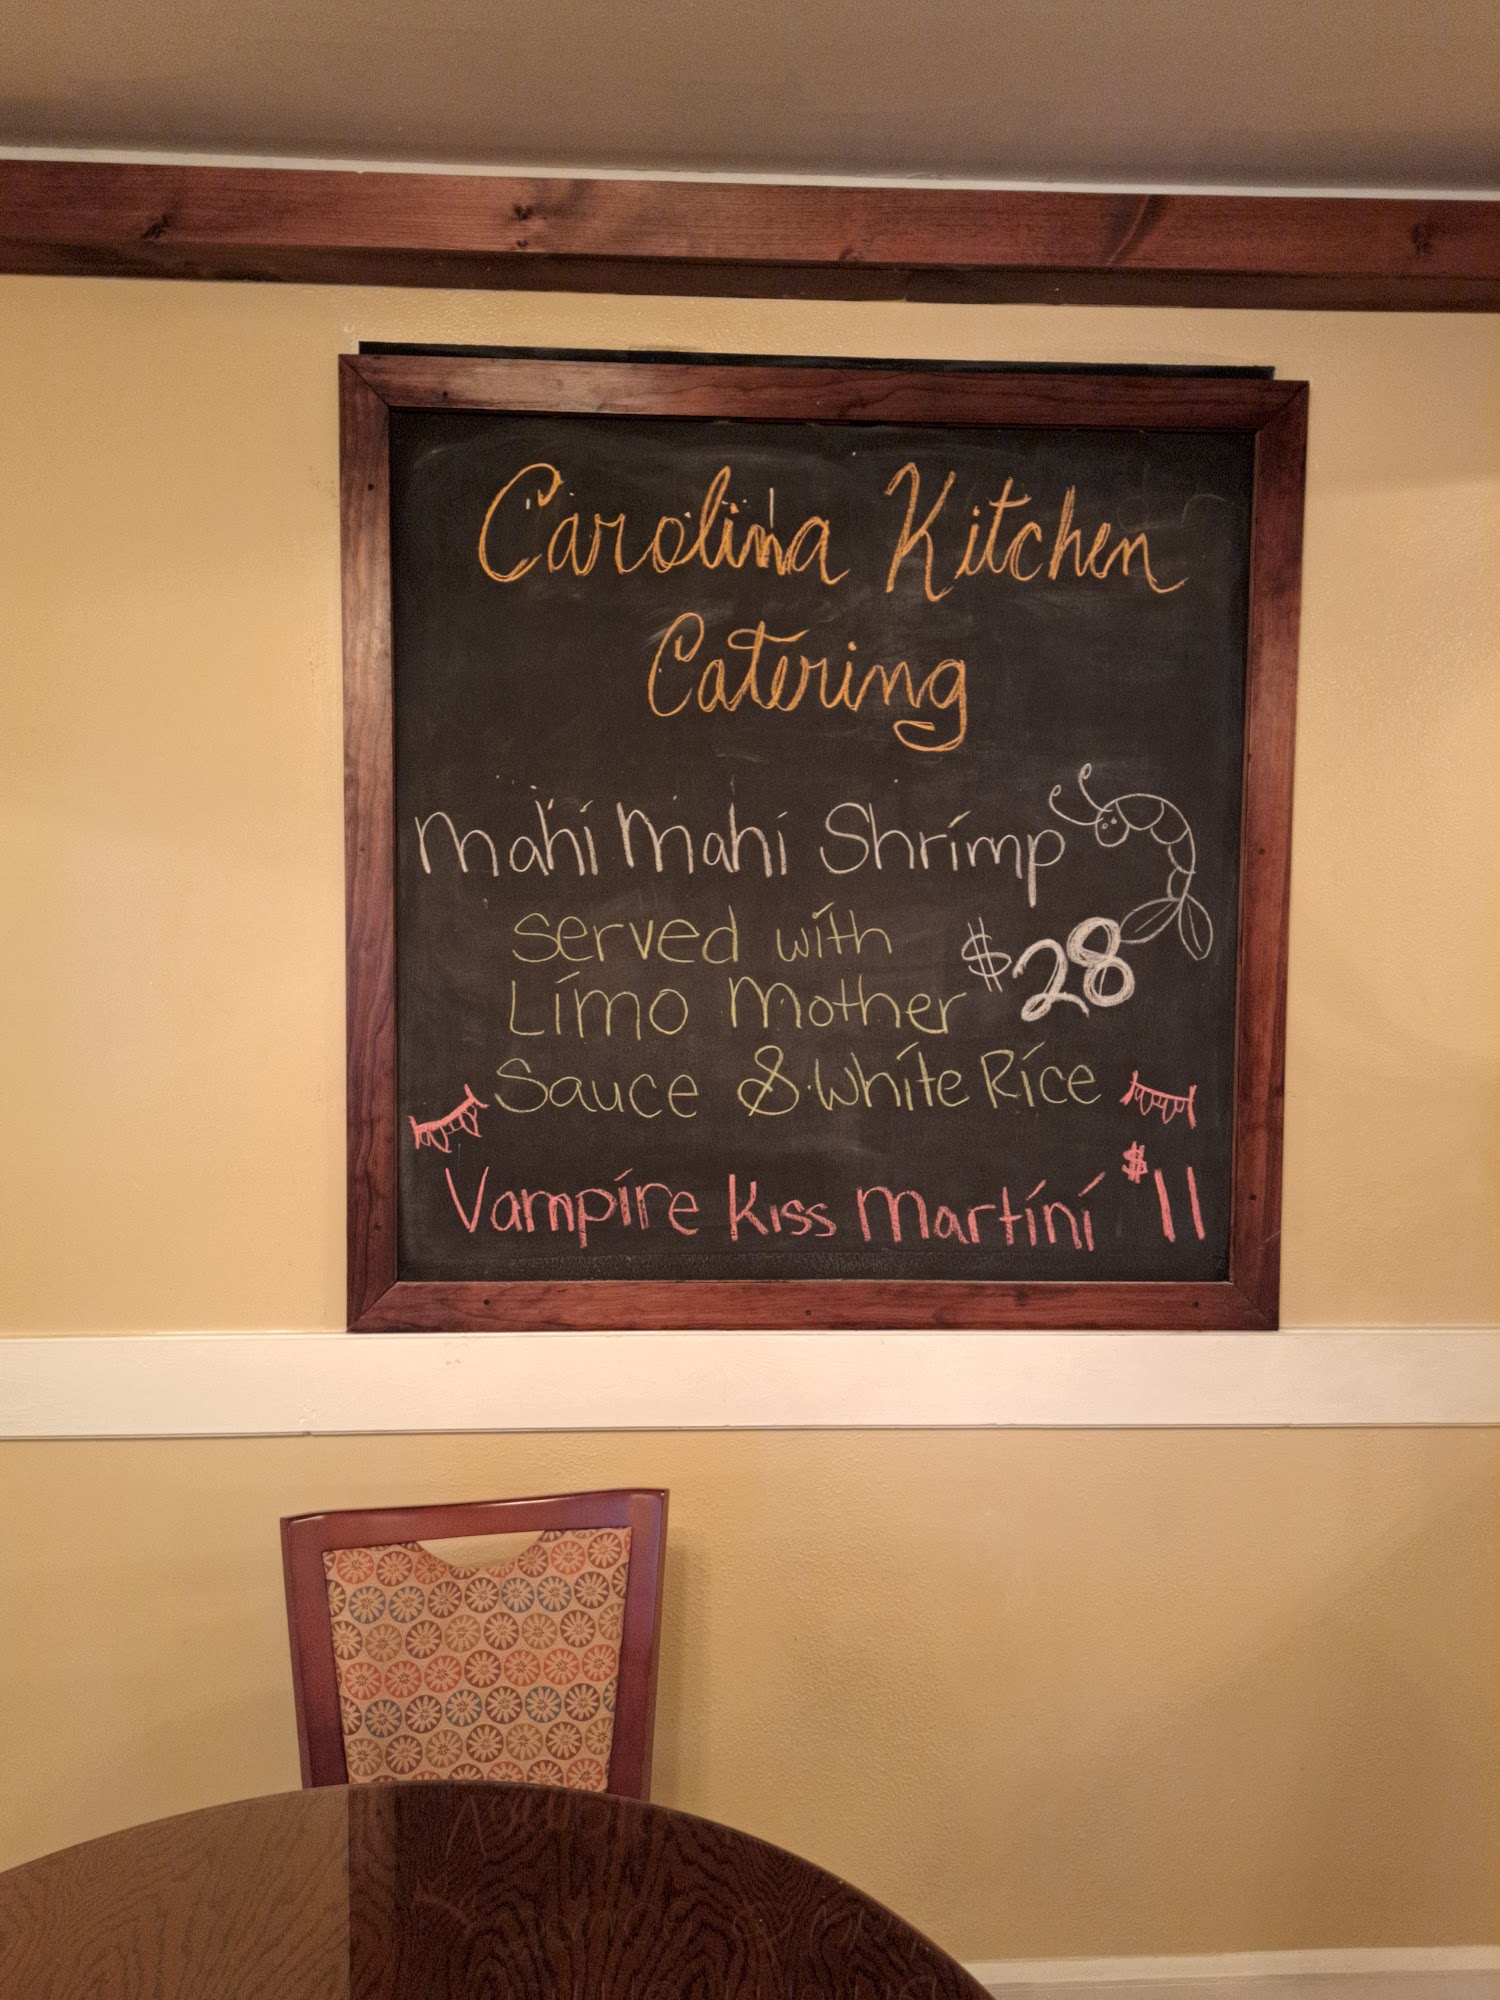 Carolina Kitchen
Catering
Mahi Mahi Shrimp
Served with
Limo Mother $28
Sauce & White Rice
Vampire Kiss Martini $11